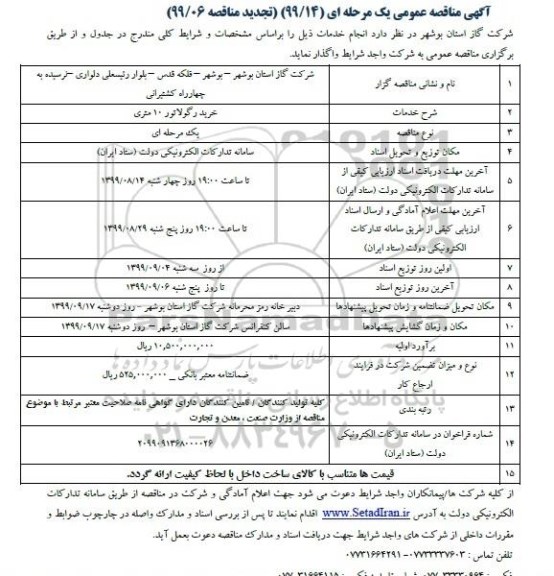 آگهی مناقصه عمومی یک مرحله ای (۹۹/۱۴) (تجدید مناقصه ۹۹/۰۶)
شرکت گاز استان بوشهر در نظر دارد انجام خدمات ذیل را براساس مشخصات و شرایط کلی مندرج در جدول و از طریق
برگزاری مناقصه عمومی به شرکت واجد شرایط واگذار نماید.
۱ نام و نشانی مناقصه گزار شرکت گاز استان بوشهر – بوشهر – فلکه قدس – بلوار رئیسعلی دلواری – نرسیده به
چهارراه کشتیرانی
۲ شرح خدمات خرید رگولاتور ۱۰ متری
۳ نوع مناقصه یک مرحله ای
۴ مکان توزیع و تحویل اسناد سامانه تدارکات الکترونیکی دولت (ستاد ایران)
۵ آخرین مهلت دریافت اسناد ارزیابی کیفی از
سامانه تدارکات الکترونیکی دولت (ستاد ایران) تا ساعت ۱۹:۰۰ روز چهار شنبه ۱۳۹۹/۰۸/۱۴
۶ آخرین مهلت اعلام آمادگی و ارسال اسناد
ارزیابی کیفی از طریق سامانه تدارکات
الکترونیکی دولت (ستاد ایران) تا ساعت ۱۹:۰۰ روز پنج شنبه ۱۳۹۹/۰۸/۲۹
۷ اولین روز توزیع اسناد از روز سه شنبه ۱۳۹۹/۰۹/۰۴
۸ آخرین روز توزیع اسناد تا روز پنج شنبه ۱۳۹۹/۰۹/۰۶
۹ مکان تحویل ضمانتنامه و زمان تحویل پیشنهادها دبیر خانه رمز محرمانه شرکت گاز استان بوشهر - روز دوشنبه ۱۳۹۹/۰۹/۱۷
۱۰ مکان و زمان گشایش پیشنهادها سالن کنفرانس شرکت گاز استان بوشهر – روز دوشنبه ۱۳۹۹/۰۹/۱۷
۱۱ برآورد اولیه ۱۰,۵۰۰,۰۰۰,۰۰۰ ریال
۱۲ نوع و میزان تضمین شرکت در فرایند
ارجاع کار ضمانتنامه معتبر بانکی _ ۵۲۵,۰۰۰,۰۰۰ ریال
۱۳ رتبه بندی کلیه تولید کنندگان / تامین کنندگان دارای گواهی نامه صلاحیت معتبر مرتبط با موضوع
مناقصه از وزارت صنعت ، معدن و تجارت
۱۴ شماره فراخوان در سامانه تدارکات الکترونیکی
دولت (ستاد ایران) ۲۰۹۹۰۹۱۳۶۸۰۰۰۰۲۶
۱۵ قیمت ها متناسب با کالای ساخت داخل با لحاظ کیفیت ارائه گردد.
از کلیه شرکت ها/پیمانکاران واجد شرایط دعوت می شود جهت اعلام آمادگی و شرکت در مناقصه از طریق سامانه تدارکات
الکترونیکی دولت به آدرس www.SetadIran.ir اقدام نمایند تا پس از بررسی اسناد و مدارک واصله در چارچوب ضوابط و
مقررات داخلی از شرکت های واجد شرایط جهت دریافت اسناد و مدارک مناقصه دعوت بعمل آید.
تلفن تماس : ۰۷۷۳۳۳۳۷۶۰۳- ۰۷۷۳۱۶۶۴۲۹۱